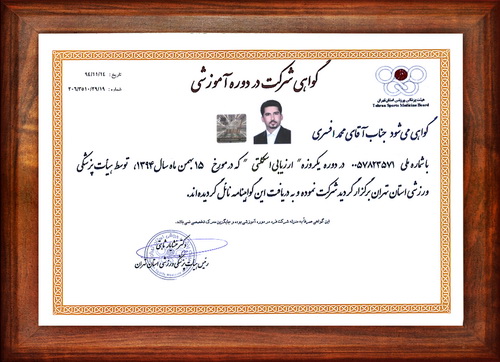 گواهی شرکت در دوره آموزشی
تاریخ: ۹۴/۱۱/۱۴
شماره: ۲۰۶/۳۵۱۰/۲۹/۱۹
هیئت پزشکی ورزشی استان تهران
Tehran Sports Medicine Board
گواهی می‌شود جناب آقای محمد افسری
با شماره ملی ۰۰۵۷۸۲۳۵۷۱ در دوره یکروزه " ارزیابی اسکلتی " که در مورخ ۱۵ بهمن ماه سال ۱۳۹۴، توسط هیأت پزشکی
ورزشی استان تهران برگزار گردید شرکت نموده و به دریافت این گواهینامه نائل گردیده‌اند.
این گواهی صرفاً به منزله شرکت فرد در دوره آموزشی بوده و جایگزین مدرک تخصصی نمی‌باشد.
دکتر
رئیس هیأت پزشکی ورزشی استان تهران